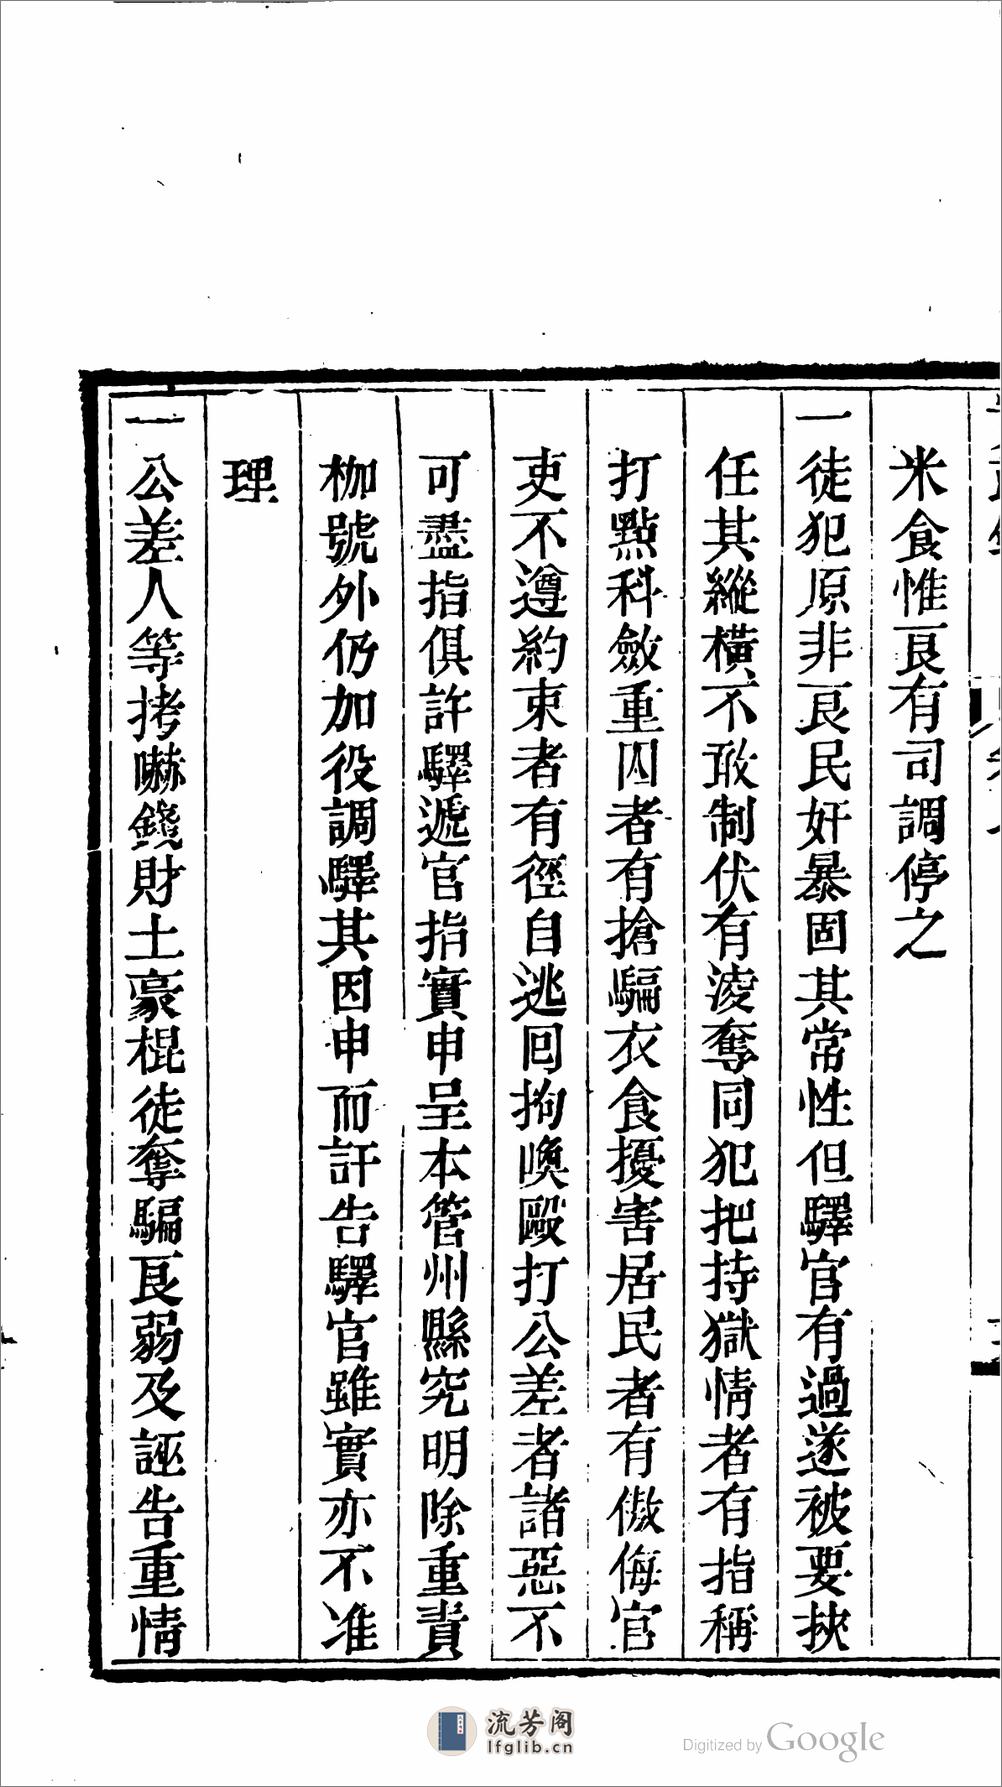 米食惟良有司調停之
一徒犯原非良民奸暴固其常性但驛官有過遂被要挾
任其縱橫不敢制伏有淩奪同犯把持獄情者有指稱
打點科斂重囚者有搶騙衣食擾害居民者有傲侮官
吏不遵約束者有徑自逃回拘喚毆打公差者諸惡不
可盡指俱許驛遞官指實申呈本管州縣究明除重責
枷號外仍加役調驛其因申而訐告驛官雖實亦不准
理
一公差人等拷嚇錢財土豪棍徒奪騙良弱及誣告重情
流芳阁
lfglib.cn
Digitized by Google